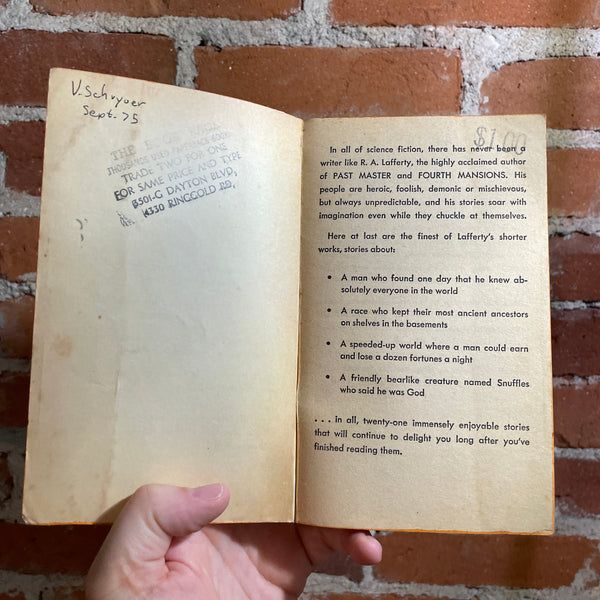 V. Schryver
Sept. 75
THE
THOUSANDS USED PAPERBACK BOOKS
TRADE TWO FOR ONE
FOR SAME PRICE AND TYPE
8501-G DAYTON BLVD,
4330 RINGGOLD RD,
$1.00
In all of science fiction, there has never been a
writer like R. A. Lafferty, the highly acclaimed author
of PAST MASTER and FOURTH MANSIONS. His
people are heroic, foolish, demonic or mischievous,
but always unpredictable, and his stories soar with
imagination even while they chuckle at themselves.
Here at last are the finest of Lafferty's shorter
works, stories about:
• A man who found one day that he knew ab-
solutely everyone in the world
• A race who kept their most ancient ancestors
on shelves in the basements
• A speeded-up world where a man could earn
and lose a dozen fortunes a night
• A friendly bearlike creature named Snuffles
who said he was God
. . . in all, twenty-one immensely enjoyable stories
that will continue to delight you long after you've
finished reading them.